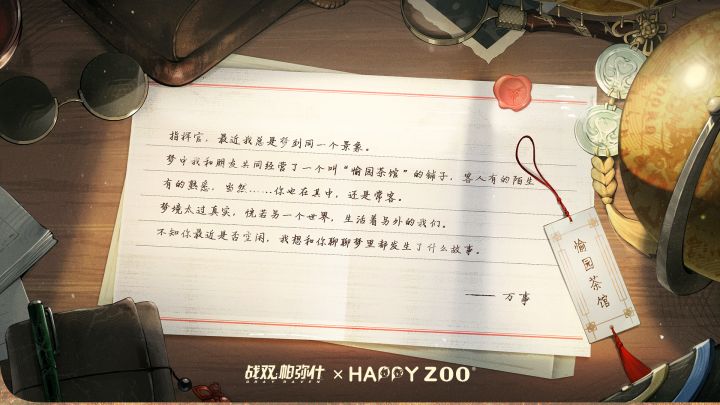 指挥官，最近我总是梦到同一个景象。
梦中我和朋友共同经营了一个叫“愉园茶馆”的铺子，客人有的陌生
有的熟悉，当然……你也在其中，还是常客。
梦境太过真实，恍若另一个世界，生活着另外的我们。
不知你最近是否空闲，我想和你聊聊梦里都发生了什么故事。
—— 万事
愉园茶馆
战双帕弥什 × HAPPY ZOO
GRAY RAVEN